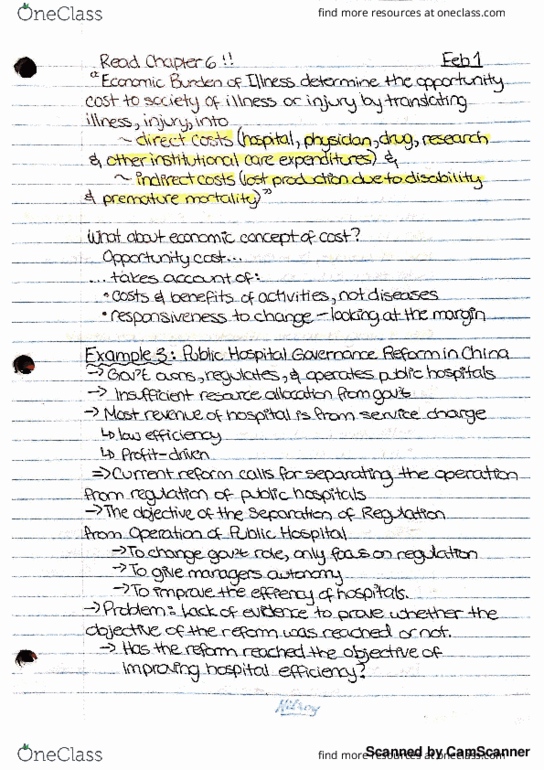 OneClass
find more resources at oneclass.com
Read Chapter 6 !!
Feb 1
"Economic Burden of Illness determine the opportunity
cost to society of illness or injury by translating
illness, injury, into
~ direct costs (hospital, physician, drug, research
& other institutional care expenditures) &
~ indirect costs (lost production due to disability
& premature mortality)"
What about economic concept of cost?
Opportunity cost...
... takes account of:
• costs & benefits of activities, not diseases
• responsiveness to change - looking at the margin
Example 3: Public Hospital Governance Reform in China
→ Gov't owns, regulates, & operates public hospitals
→ Insufficient resource allocation from gov't
→ Most revenue of hospital is from service charge
↳ low efficiency
↳ Profit-driven
⇒ Current reform calls for separating the operation
from regulation of public hospitals
→ The objective of the Separation of Regulation
from Operation of Public Hospital
→ To change gov't role, only focus on regulation
→ To give managers autonomy
→ To improve the effiency of hospitals.
→ Problem: Lack of evidence to prove whether the
objective of the reform was reached or not.
→ Has the reform reached the objective of
improving hospital efficiency?
Hilroy
OneClass
find more resources at oneclass.com
Scanned by CamScanner